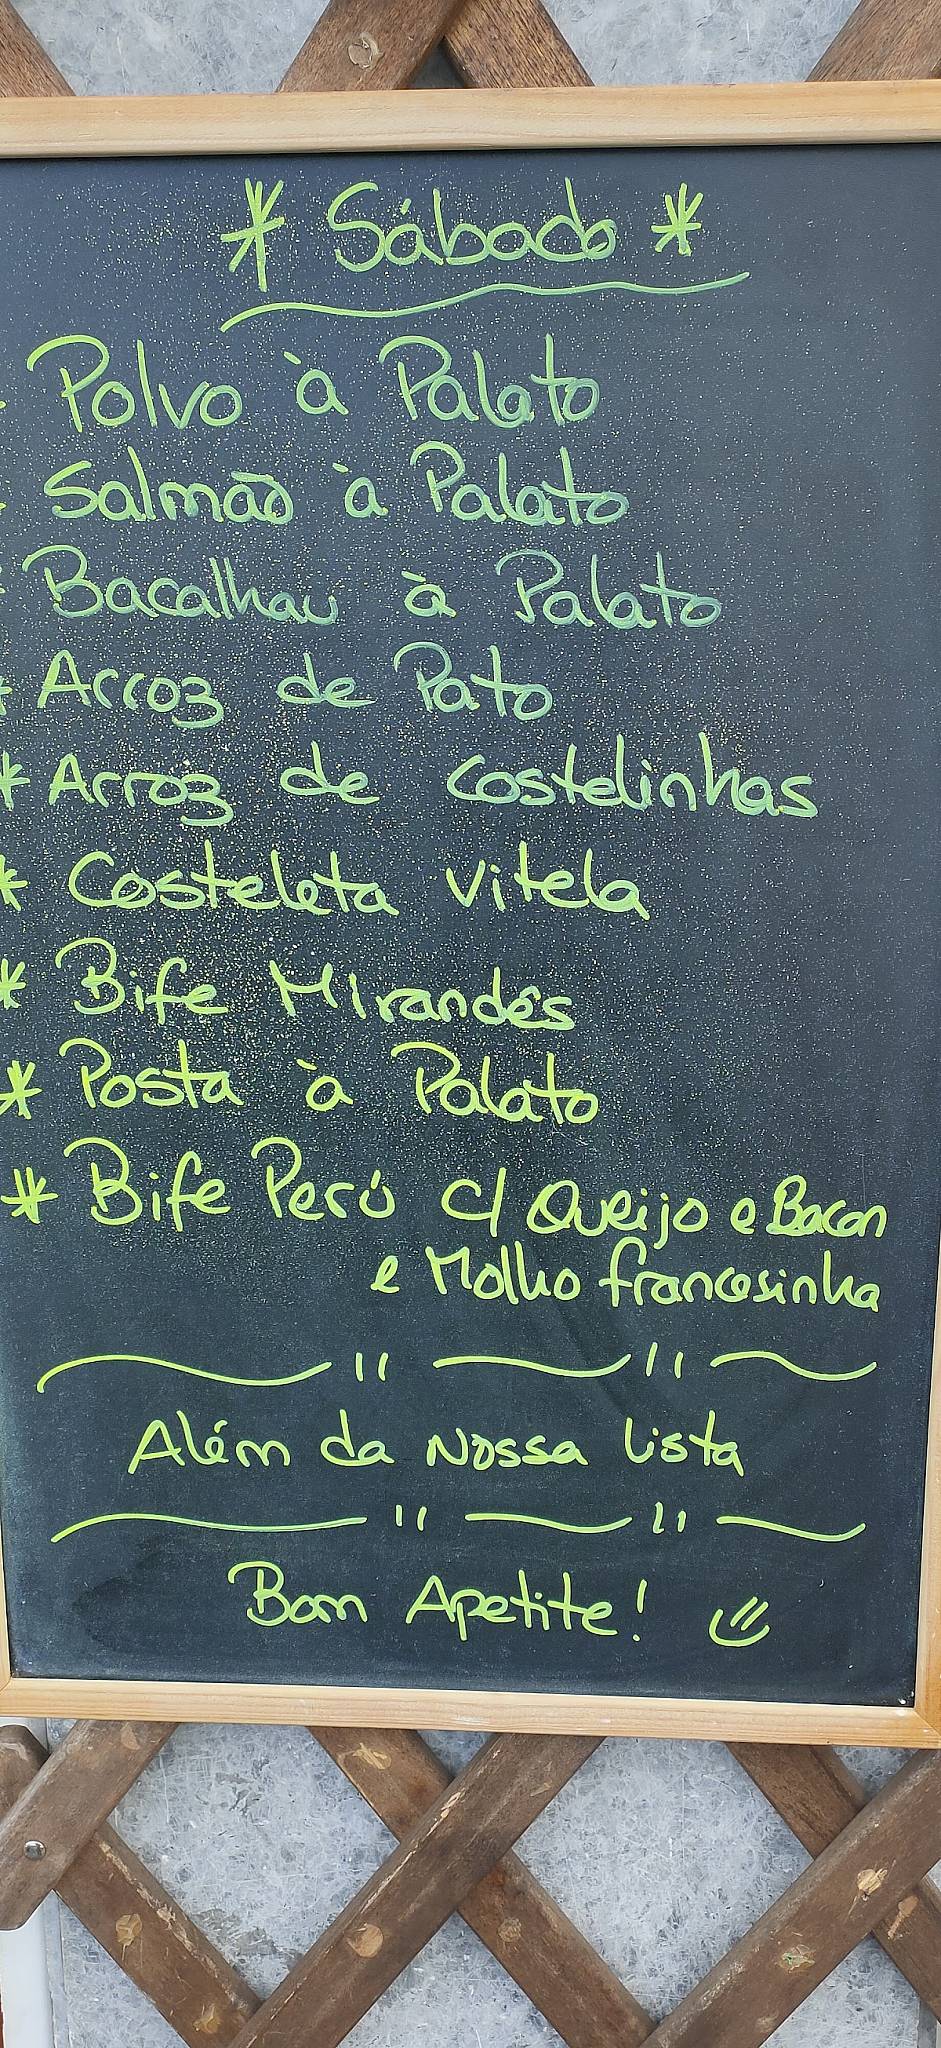 * Sábado *
* Polvo à Palato
* Salmão à Palato
* Bacalhau à Palato
* Arroz de Pato
* Arroz de costelinhas
* Costeleta vitela
* Bife Mirandês
* Posta à Palato
* Bife Perú c/ Queijo e Bacon
e Molho francesinha
Além da Nossa lista
Bom Apetite!